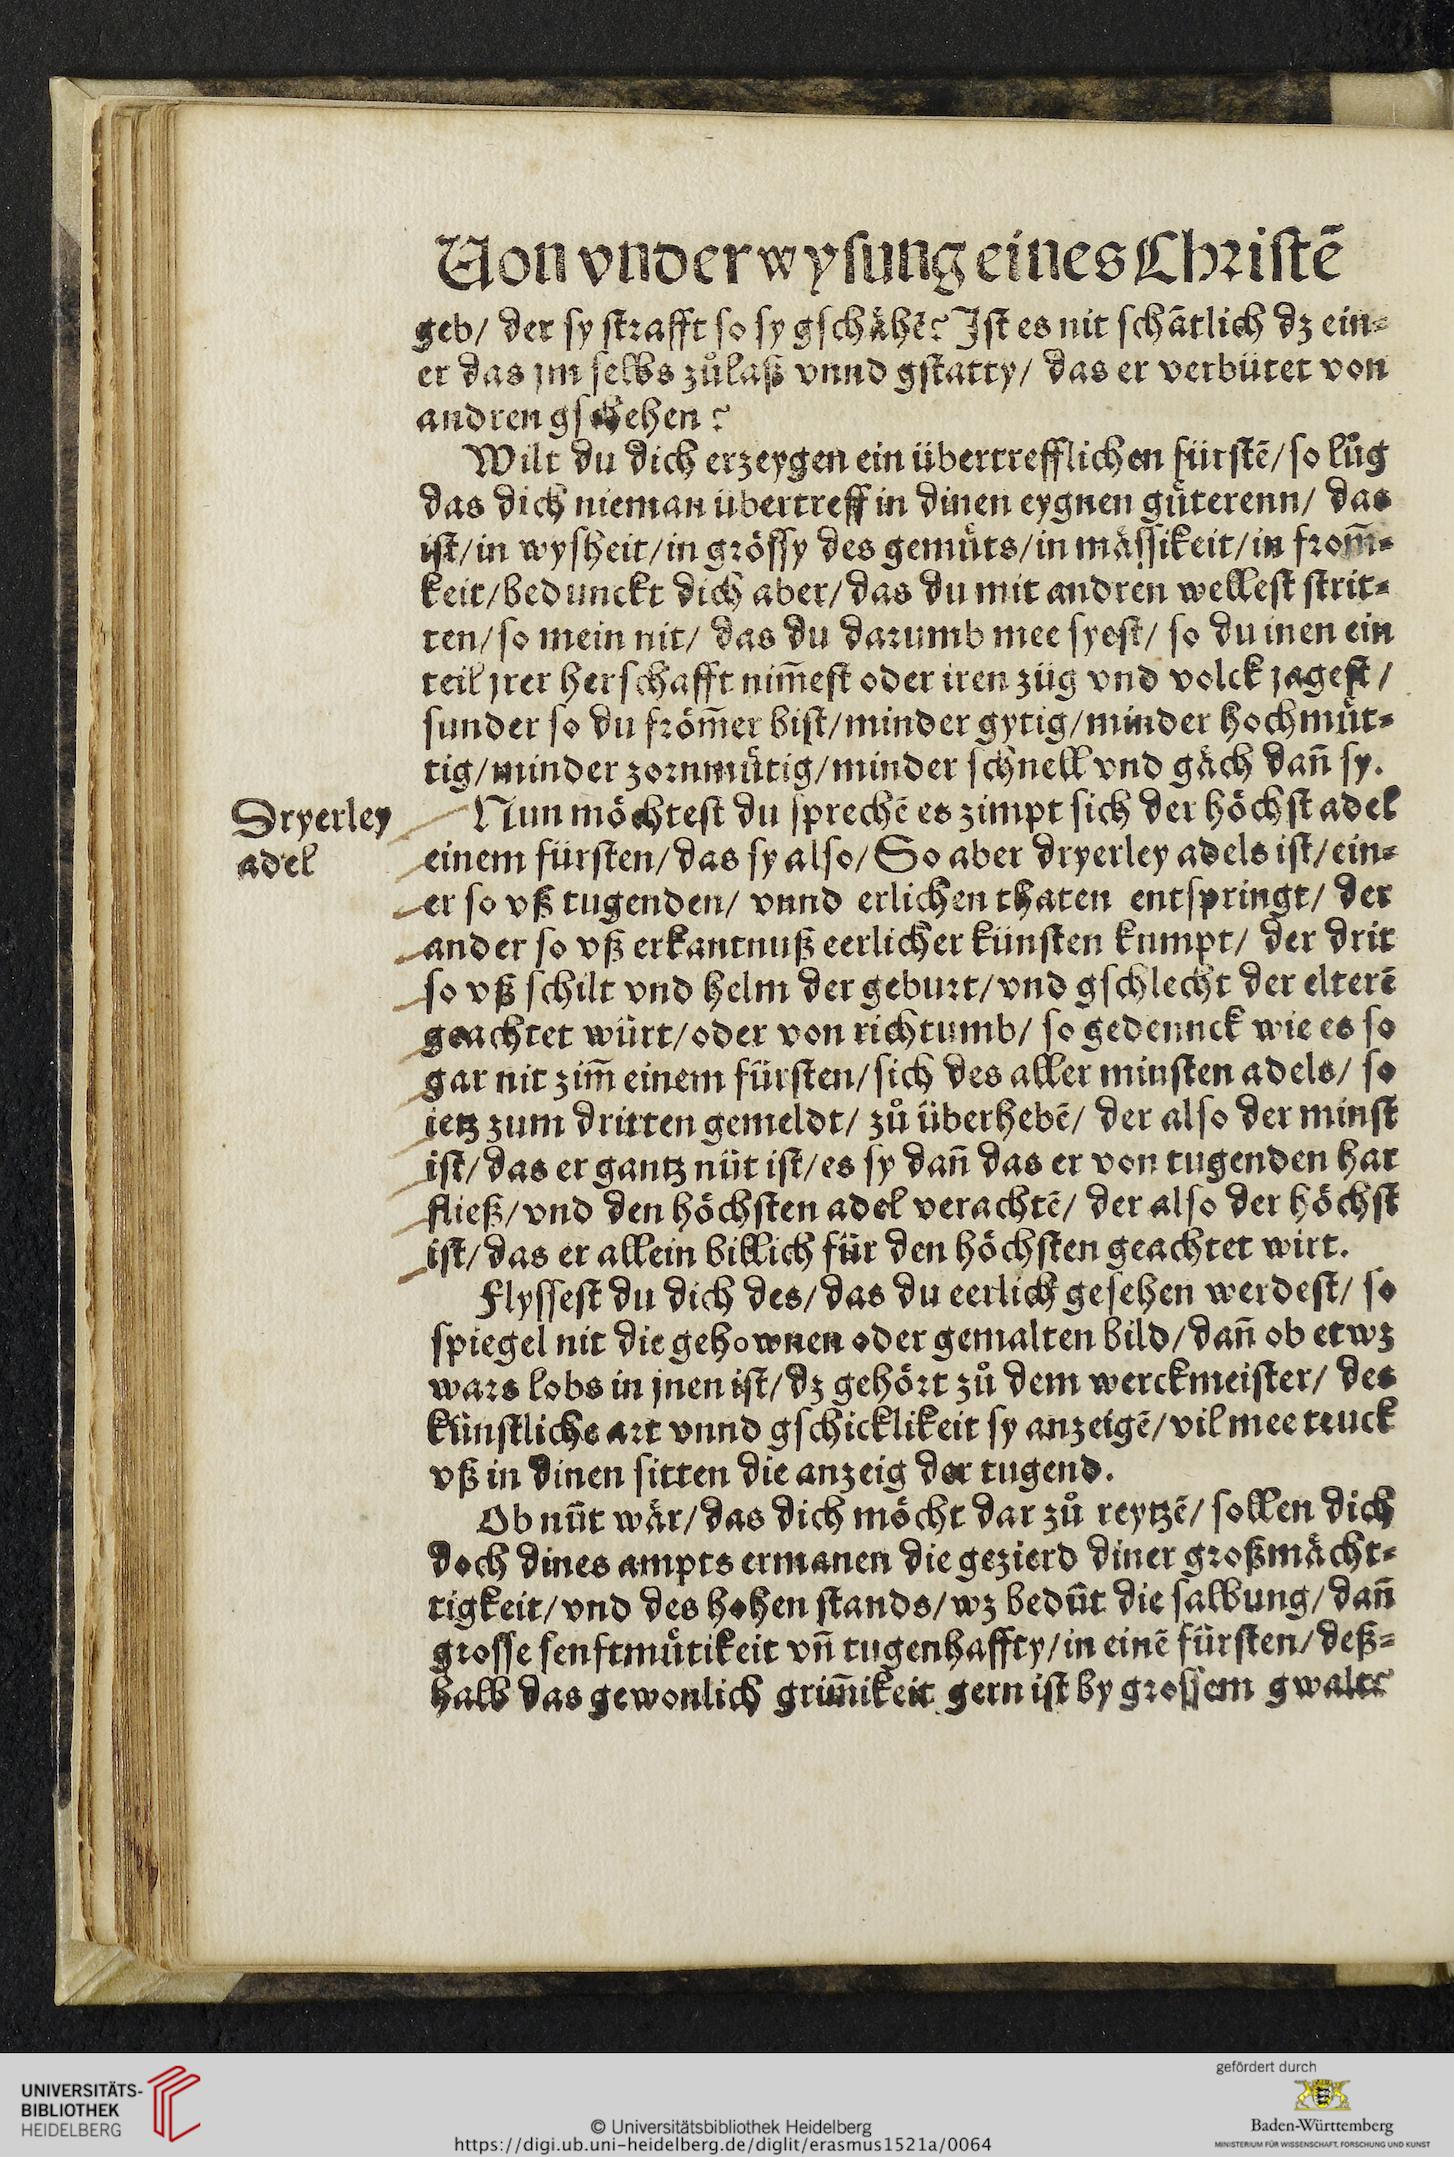 Von vnderwysung eines Christē
geb/ der sy strafft so sy gschähē? Ist es nit schātlich dz ein⸗
er das jm selbs zůlaß vnnd gstatty/ das er verbütet von
andren gschehen?
Wilt du dich erzeygen ein übertrefflichen fürstē/ so lůg
das dich nieman übertreff in dinen eygnen gůterenn/ das
ist/ in wysheit/ in grössy des gemůts/ in mässikeit/ in from̄⸗
keit/ bedunckt dich aber/ das du mit andren wellest strit⸗
ten/ so mein nit/ das du darumb mee syest/ so du inen ein
teil jrer herschafft nim̄est oder iren züg vnd volck jagest/
sunder so du fröm̄er bist/ minder gytig/ minder hochmůt⸗
tig/ minder zornmůtig/ minder schnell vnd gäch dañ sy.
Dryerley
adel
Nun möchtest du sprechē es zimpt sich der höchst adel
einem fürsten/ das sy also/ So aber dryerley adels ist/ ein⸗
er so vß tugenden/ vnnd erlichen thaten entspringt/ der
ander so vß erkantnuß eerlicher künsten kumpt/ der drit
so vß schilt vnd helm der geburt/ vnd gschlecht der elterē
geachtet würt/ oder von richtumb/ so gedennck wie es so
gar nit zim̄ einem fürsten/ sich des aller minsten adels/ so
ietz zum dritten gemeldt/ zů überhebē/ der also der minst
ist/ das er gantz nüt ist/ es sy dañ das er von tugenden har
fließ/ vnd den höchsten adel verachtē/ der also der höchst
ist/ das er allein billich für den höchsten geachtet wirt.
Flyssest du dich des/ das du eerlich gesehen werdest/ so
spiegel nit die gehownen oder gemalten bild/ dañ ob etwz
wars lobs in jnen ist/ dz gehört zů dem werckmeister/ des
künstliche art vnnd gschicklikeit sy anzeigē/ vil mee truck
vß in dinen sitten die anzeig der tugend.
Ob nüt wär/ das dich möcht dar zů reytzē/ sollen dich
doch dines ampts ermanen die gezierd diner großmächt⸗
tigkeit/ vnd des hohen stands/ wz bedüt die salbung/ dañ
grosse senftmůtikeit vñ tugenhaffty/ in einē fürsten/ deß⸗
halb das gewonlich grim̄ikeit gern ist by grossem gwalt?
UNIVERSITÄTS-
BIBLIOTHEK
HEIDELBERG
© Universitätsbibliothek Heidelberg
https://digi.ub.uni-heidelberg.de/diglit/erasmus1521a/0064
gefördert durch
Baden-Württemberg
MINISTERIUM FÜR WISSENSCHAFT, FORSCHUNG UND KUNST